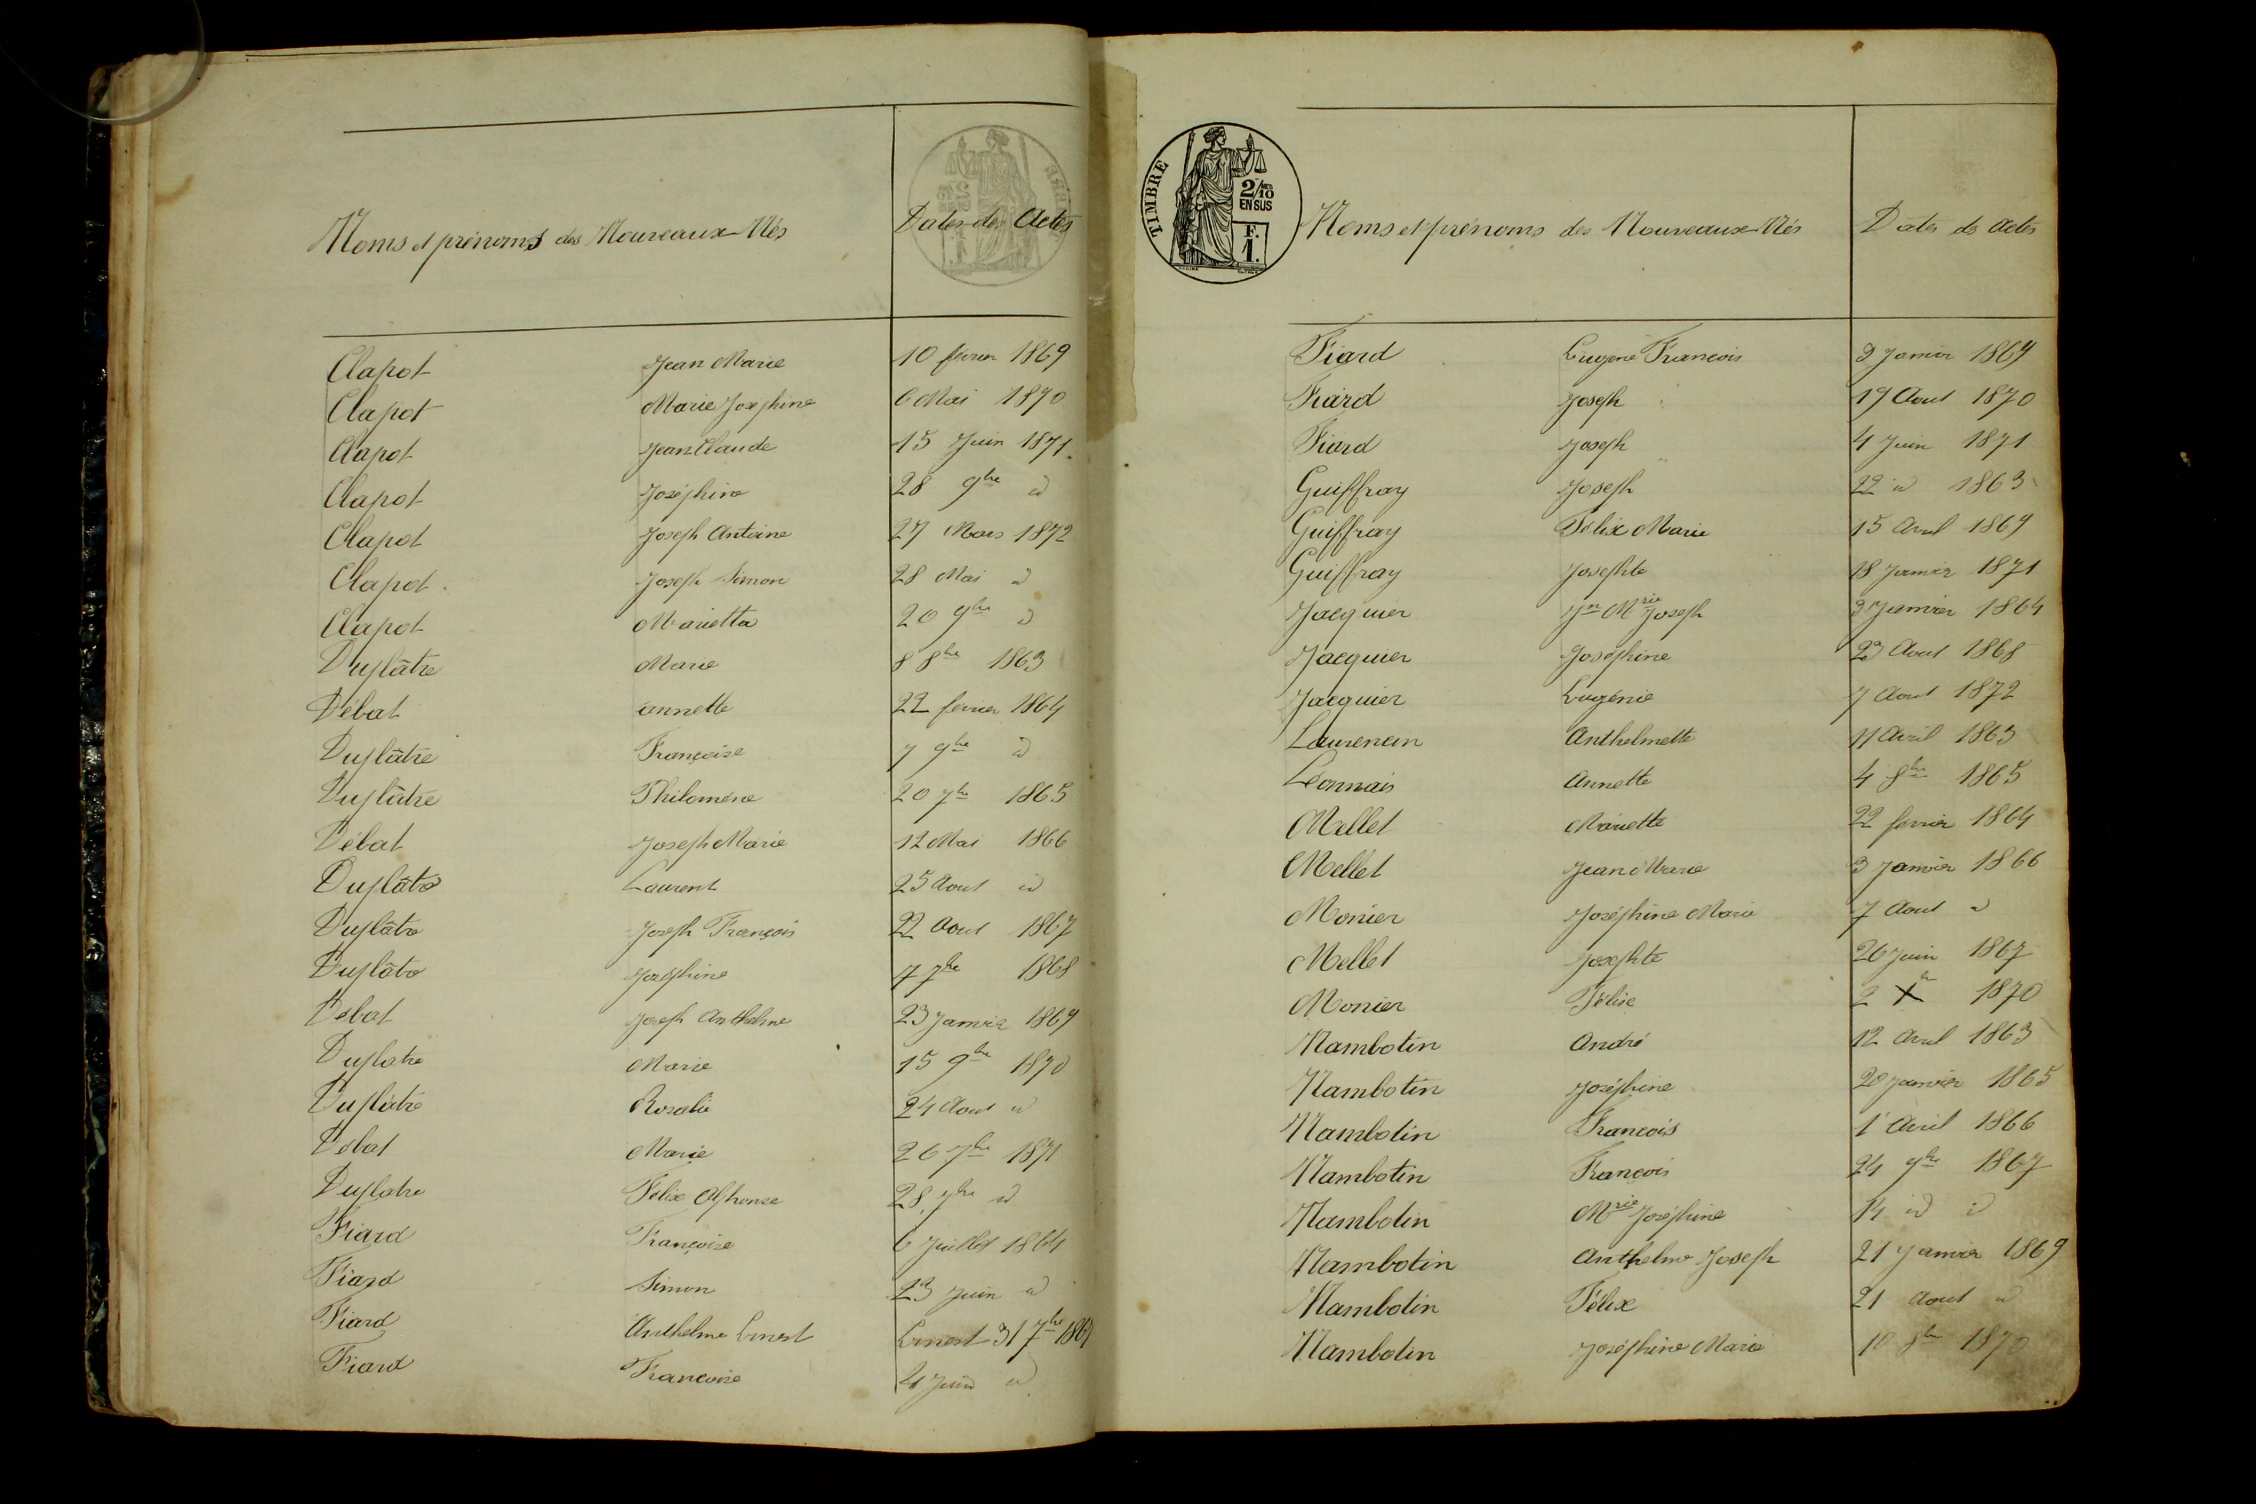 Noms et prénoms des Nouveaux Nés Dates des Actes
Clapot Jean Marie 10 février 1869
Clapot Marie Joséphine 6 Mai 1870
Clapot Jean Claude 15 Juin 1871
Clapot Joséphine 28 9bre id
Clapot Joseph Antoine 27 Mars 1872
Clapot Joseph Simon 28 Mai id
Clapot Marietta 20 9bre id
Duplâtre Marie 8 8bre 1863
Débat annette 22 février 1864
Duplâtre Françoise 7 9bre id
Duplâtre Philomène 20 7bre 1865
Débat Joseph Marie 12 Mai 1866
Duplâtre Laurent 25 Aout id
Duplâtre Joseph François 22 Aout 1867
Duplâtre Joséphine 4 7bre 1868
Débat Joseph Anthelme 23 Janvier 1869
Duplatre Marie 15 9bre 1870
Duplâtre Rosalie 24 Aout id
Débat Marie 26 7bre 1871
Duplatre Félix Alphonse 28 id
Fiard Françoise 6 Juillet 1864
Fiard Simon 23 Juin id
Fiard Anthelme Ernest Ernest 31 7bre
Fiard Françoise Juin id
TIMBRE
2/10
EN SUS
F.
1.
Noms et prénoms des Nouveaux Nés Dates des Actes
Fiard Eugène François 3 Janvier 1869
Fiard Joseph 19 Aout 1870
Fiard Joseph 4 Juin 1871
Guiffray Joseph 22 id 1863
Guiffray Félix Marie 15 Avril 1869
Guiffray Josephte 18 Janvier 1871
Jacquier Jn Mrie Joseph 3 Janvier 1864
Jacquier Joséphine 23 Aout 1868
Jacquier Eugénie 7 Aout 1872
Laurencin Anthelmette 11 Avril 1863
Léonnais Annette 4 8bre 1865
Mellet Mariette 22 février 1864
Mellet Jean Marie 3 Janvier 1866
Monier Joséphine Marie 7 Aout id
Mellet Josephte 26 Juin 1867
Monier Félise 2 Xbr 1870
Nambotin André 12 Avril 1863
Nambotin Joséphine 20 Janvier 1865
Nambotin François 1 Avril 1866
Nambotin François 24 1867
Nambotin Mrie Joséphine 14 id id
Nambotin Anthelme Joseph 21 Janvier 1869
Nambotin Félix 21 Aout id
Nambotin Joséphine Marie 10 8bre 1870